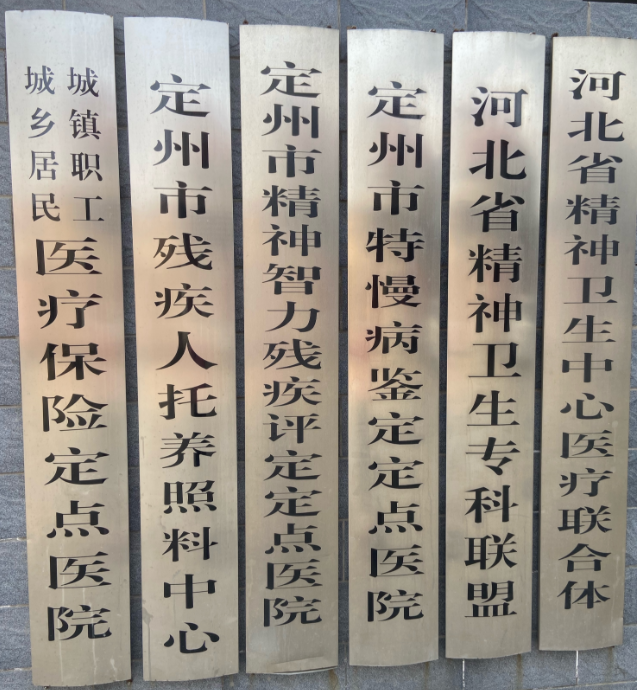 城镇职工
城乡居民
医疗保险定点医院
定州市残疾人托养照料中心
定州市精神智力残疾评定定点医院
定州市特慢病鉴定定点医院
河北省精神卫生专科联盟
河北省精神卫生中心医疗联合体